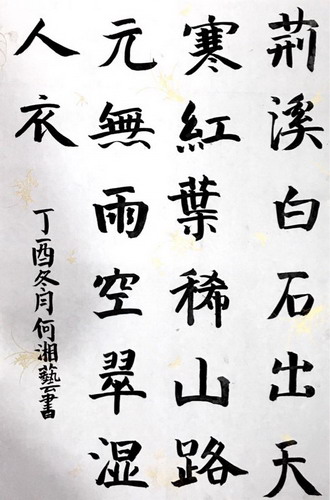 荆溪白石出天
寒紅葉稀山路
元無雨空翠湿
人衣
丁酉冬月何湘藝書